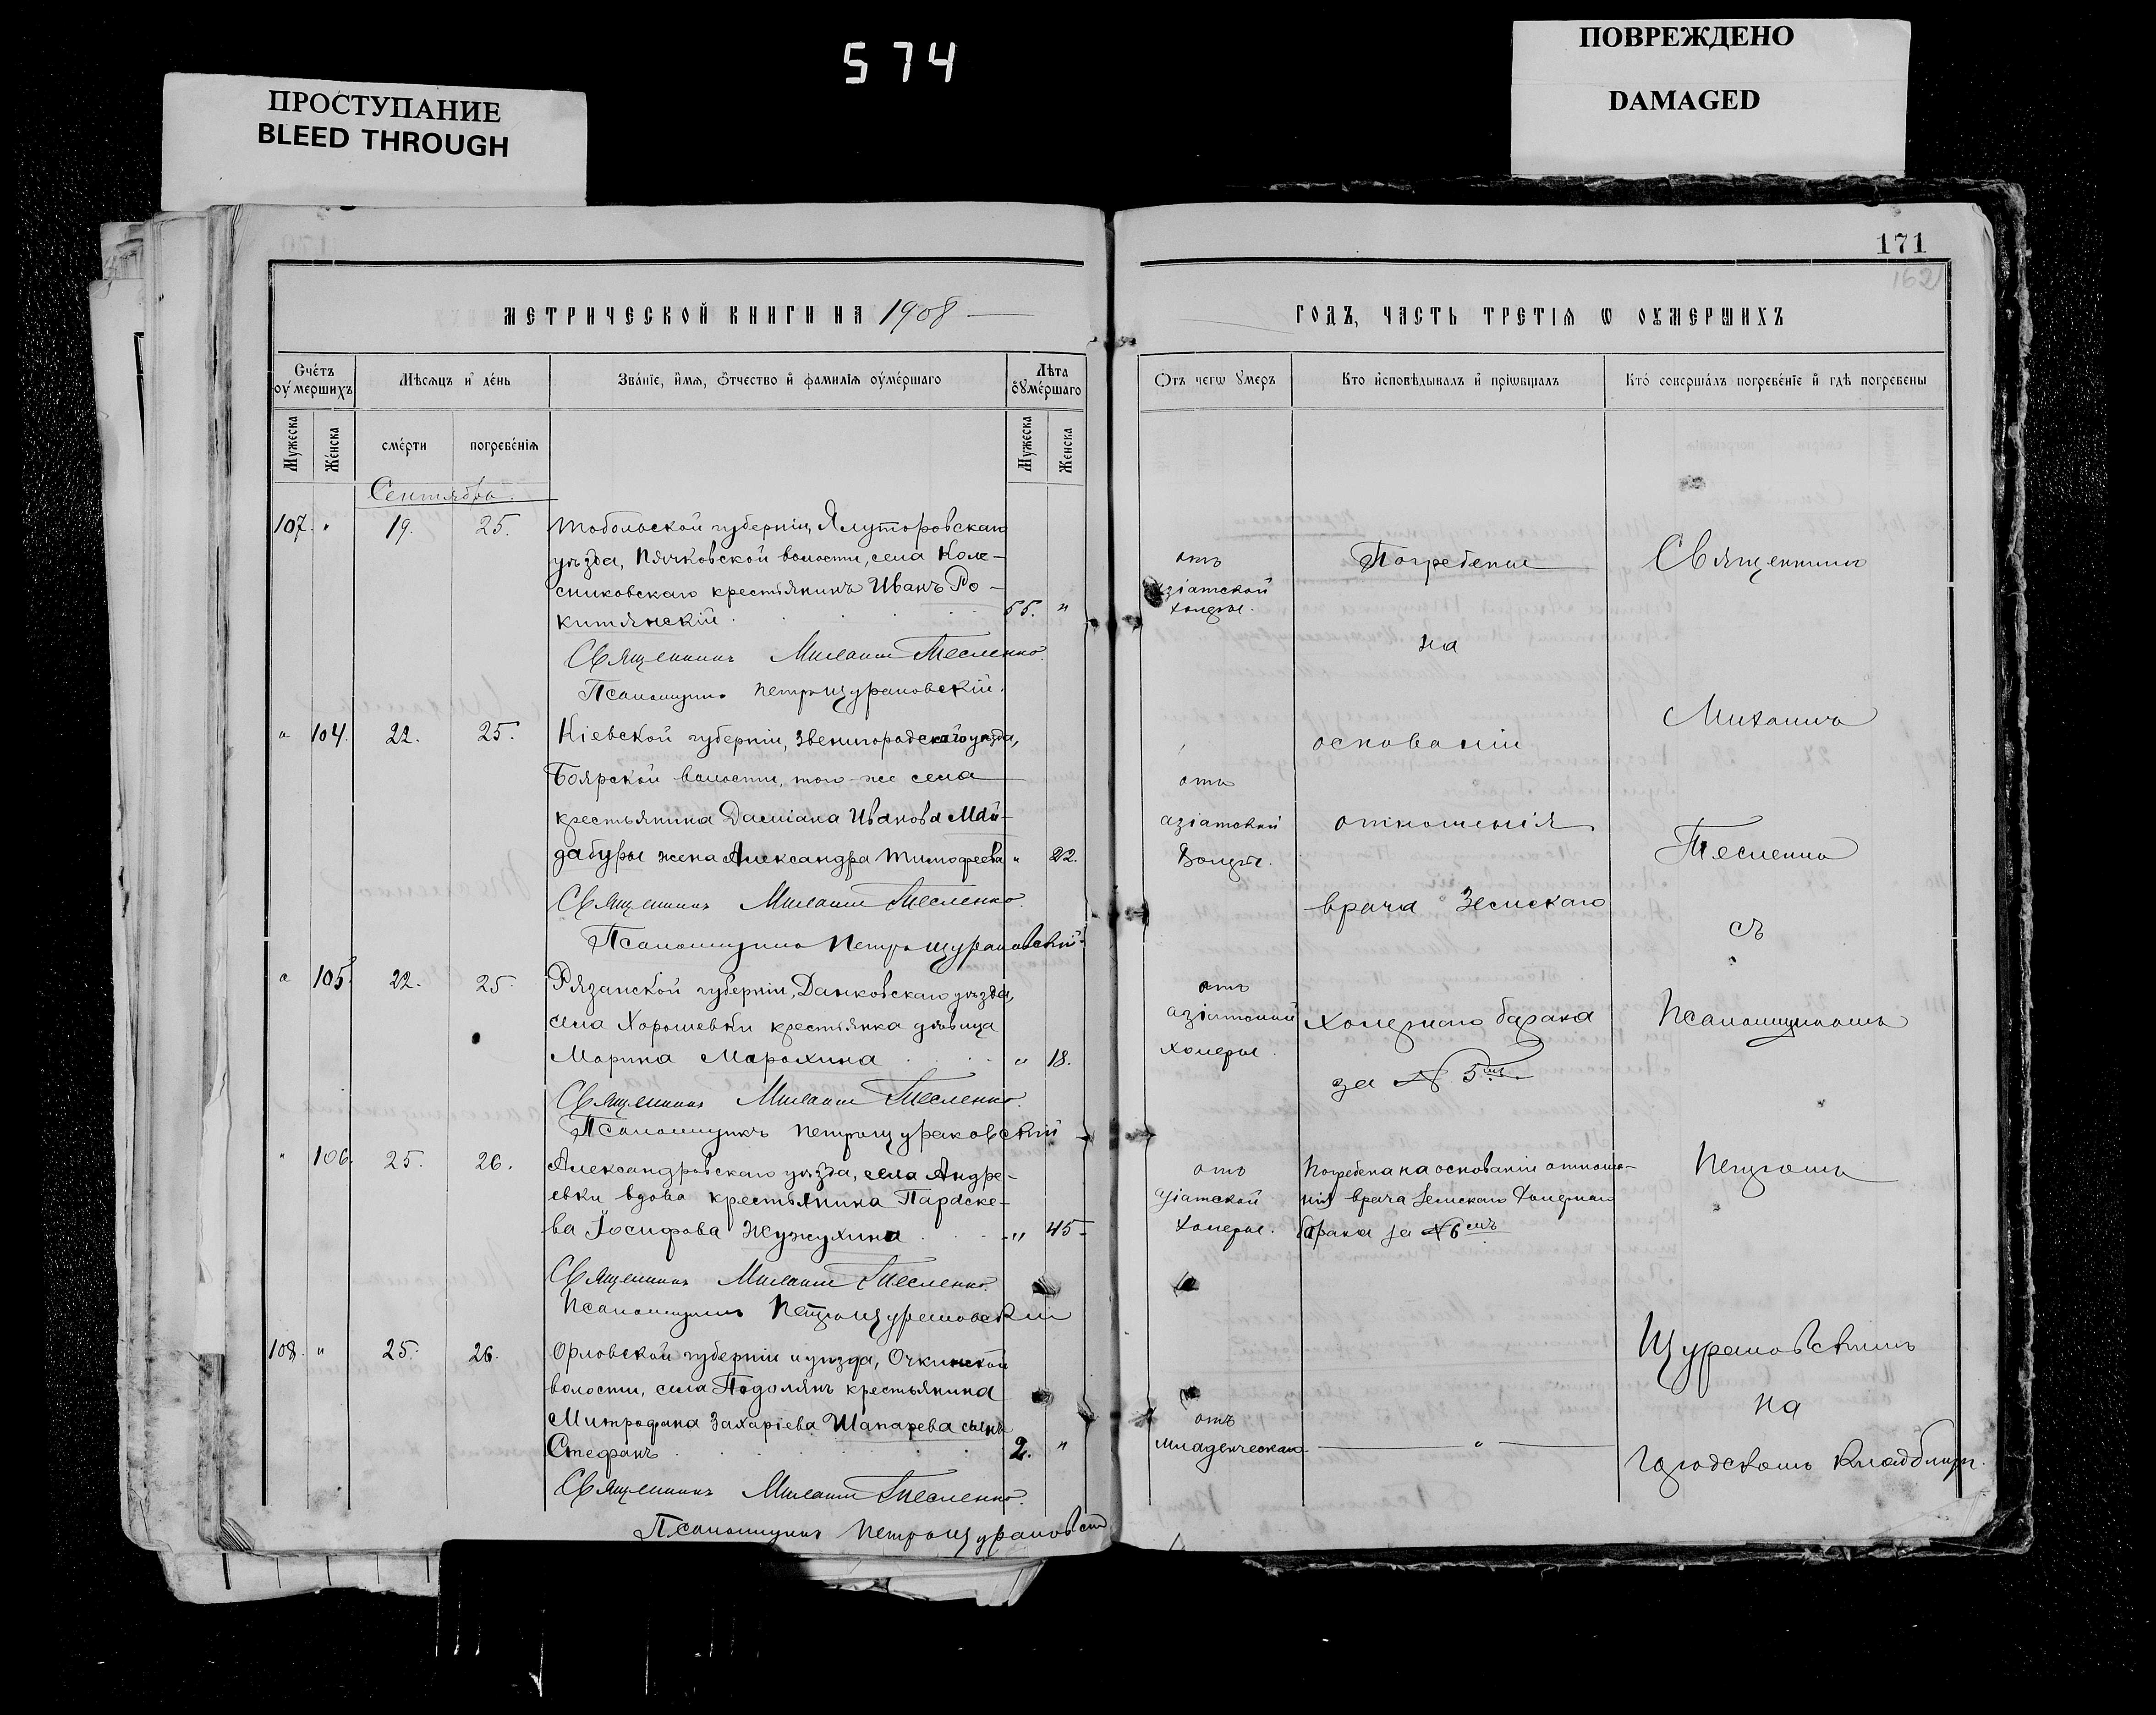 574
ПРОСТУПАНИЕ
BLEED THROUGH
ПОВРЕЖДЕНО
DAMAGED
171
162
МЕТРИЧЕСКОЙ КНИГИ НА 1908
ГОДЪ, ЧАСТЬ ТРЕТІѦ Ѡ ОУМЕРШИХЪ
Счётъ оумершихъ
Мѣсяцъ и день
Званіе, имя, отчество и фамилія оумершаго
Лѣта оумершаго
Мужеска
Женска
смерти
погребенія
Мужеска
Женска
Отъ чегѡ умеръ
Кто исповѣдывалъ и пріѡбщалъ
Кто совершалъ погребеніе и гдѣ погребены
Сентябрь.
107. " 19. 25. Тобольской губерніи, Ялуторовскаго
уѣзда, Пячковской волости, села Коле-
сниковскаго крестьянинъ Иванъ Ро-
китянскій 55. "
Священникъ Михаилъ Тесленко.
Псаломщикъ Петръ Щурановскій.
" 104. 22. 25. Кіевской губерніи, Звенигородскаго уѣзда,
Боярской волости, того-же села
крестьянина Даміана Иванова Май-
дабуры жена Александра Тимофеева " 22.
Священникъ Михаилъ Тесленко.
Псаломщикъ Петръ Щурановскій.
" 105. 22. 25. Рязанской губерніи, Данковскаго уѣзда,
села Хорошевки крестьянка дѣвица
Марина Марахина " 18.
Священникъ Михаилъ Тесленко.
Псаломщикъ Петръ Щурановскій
" 106. 25. 26. Александровскаго уѣзда, села Андре-
евки вдова крестьянина Параске-
ва Іосифова Жужухина " 45
Священникъ Михаилъ Тесленко.
Псаломщикъ Петръ Щурановскій
108. " 25. 26. Орловской губерніи и уѣзда, Очкинской
волости, села Подолянъ крестьянина
Митрофана Захаріева Шапарева сынъ
Стефанъ 2. "
Священникъ Михаилъ Тесленко.
Псаломщикъ Петръ Щурановскій
отъ
азіатской
холеры.
отъ
азіатской
холеры.
отъ
азіатской
холеры.
отъ
азіатской
холеры.
отъ
младенческаго
Погребены
на
основаніи
отношенія
врача Земскаго
холернаго барака
за № 5мъ
Погребена на основаніи отноше-
нія врача Земскаго Холернаго
барака за № 6мъ
"
Священникъ
Михаилъ
Тесленко
съ
Псаломщикомъ
Петромъ
Щурановскимъ
на
городскомъ кладбищѣ.